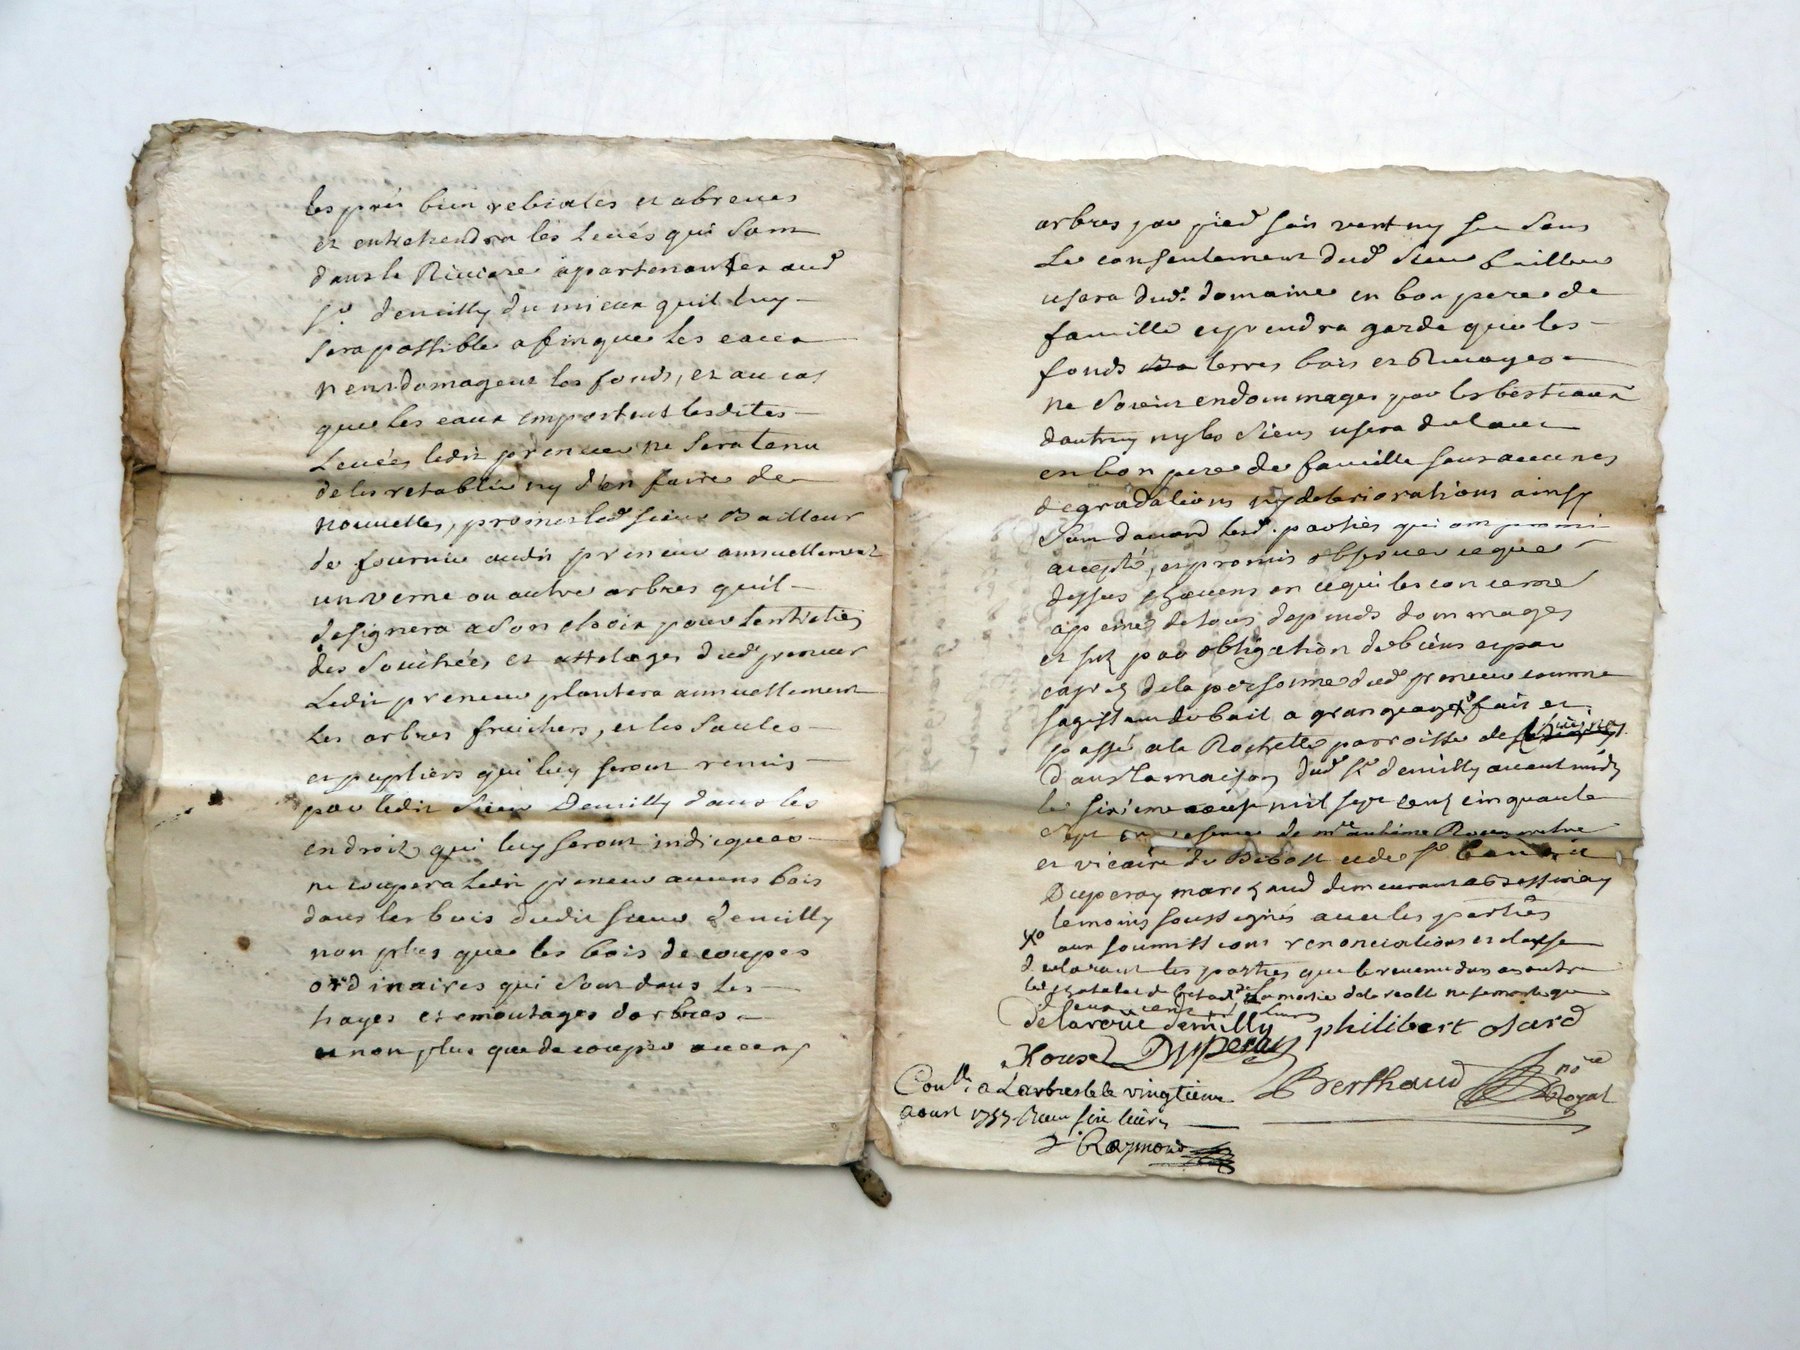 les prés bien rebialés et abreves
et entretiendra les Levés qui Sont
dans la Riviere apartenantes aud
Sr. demilly du mieux quil luy
Sera possible afin que les eaux
n'endomagent les fonds, et au cas
que les eaux emportent lesdites
Levées ledit preneur ne Sera tenu
de les retablir ny d'en faire de
nouvelles, promet led sieur Bailleur
de fournir audit preneur annuellement
un verne ou autre arbres quil
designera a Son choix pour lentretien
des Souchées et attelages dud preneur
Ledit preneur plantera annuellement
Les arbres fruitiers, et les Saules
et pupliers qui luy seront remis
par ledit Sieur Demilly dans les
endroits qui luy seront indicqués
ne coupera Ledit preneur aucuns bois
dans les bois dudit sieur Demilly
non plus que les bois de coupes
ordinaires qui Sont dans les
hayes et emontages darbres
non plus que de couper aucuns
arbres par pied soit vert ny sec Sans
Le consentement dud Sieur bailleur
usera dud. domaine en bon pere de
famille et prendra garde que les
fonds terres bois et
ne Soient endommages par les bestiaux
dautruy ny les Siens usera du tout
en bon pere de famille sans aucunes
degradations ny deteriorations ainsy
Sont daccord lesd. parties qui ont promis
accepté, et promis observer ce que
dessus chacuns en ce qui les concerne
a peines de tous depends dommages
et par obligation de biens et par
de la personne dud preneur comme
sagissant du bail a grangeage fait et
passé a la Rochette parroisse de
Dans la maison dud Sr demilly avant midy
le sixieme aoust mil sept cent cinquante
Sept en presence de mre antoine Rousset
et vicaire du Bibost et de Sr benoit
Duperay marchand demeurant a Bessenay
temoins soussignés avec les parties
aux soumissions renonciations et clause
declarant les parties que le revenu
de la recolte ne se monte que

delaroüe demilly philibert Jard
Rousset Duperay
Berthaud nore Royal
Conlle a Larbresle le vingtieme
aoust 1757 Recu six livres
Raymond